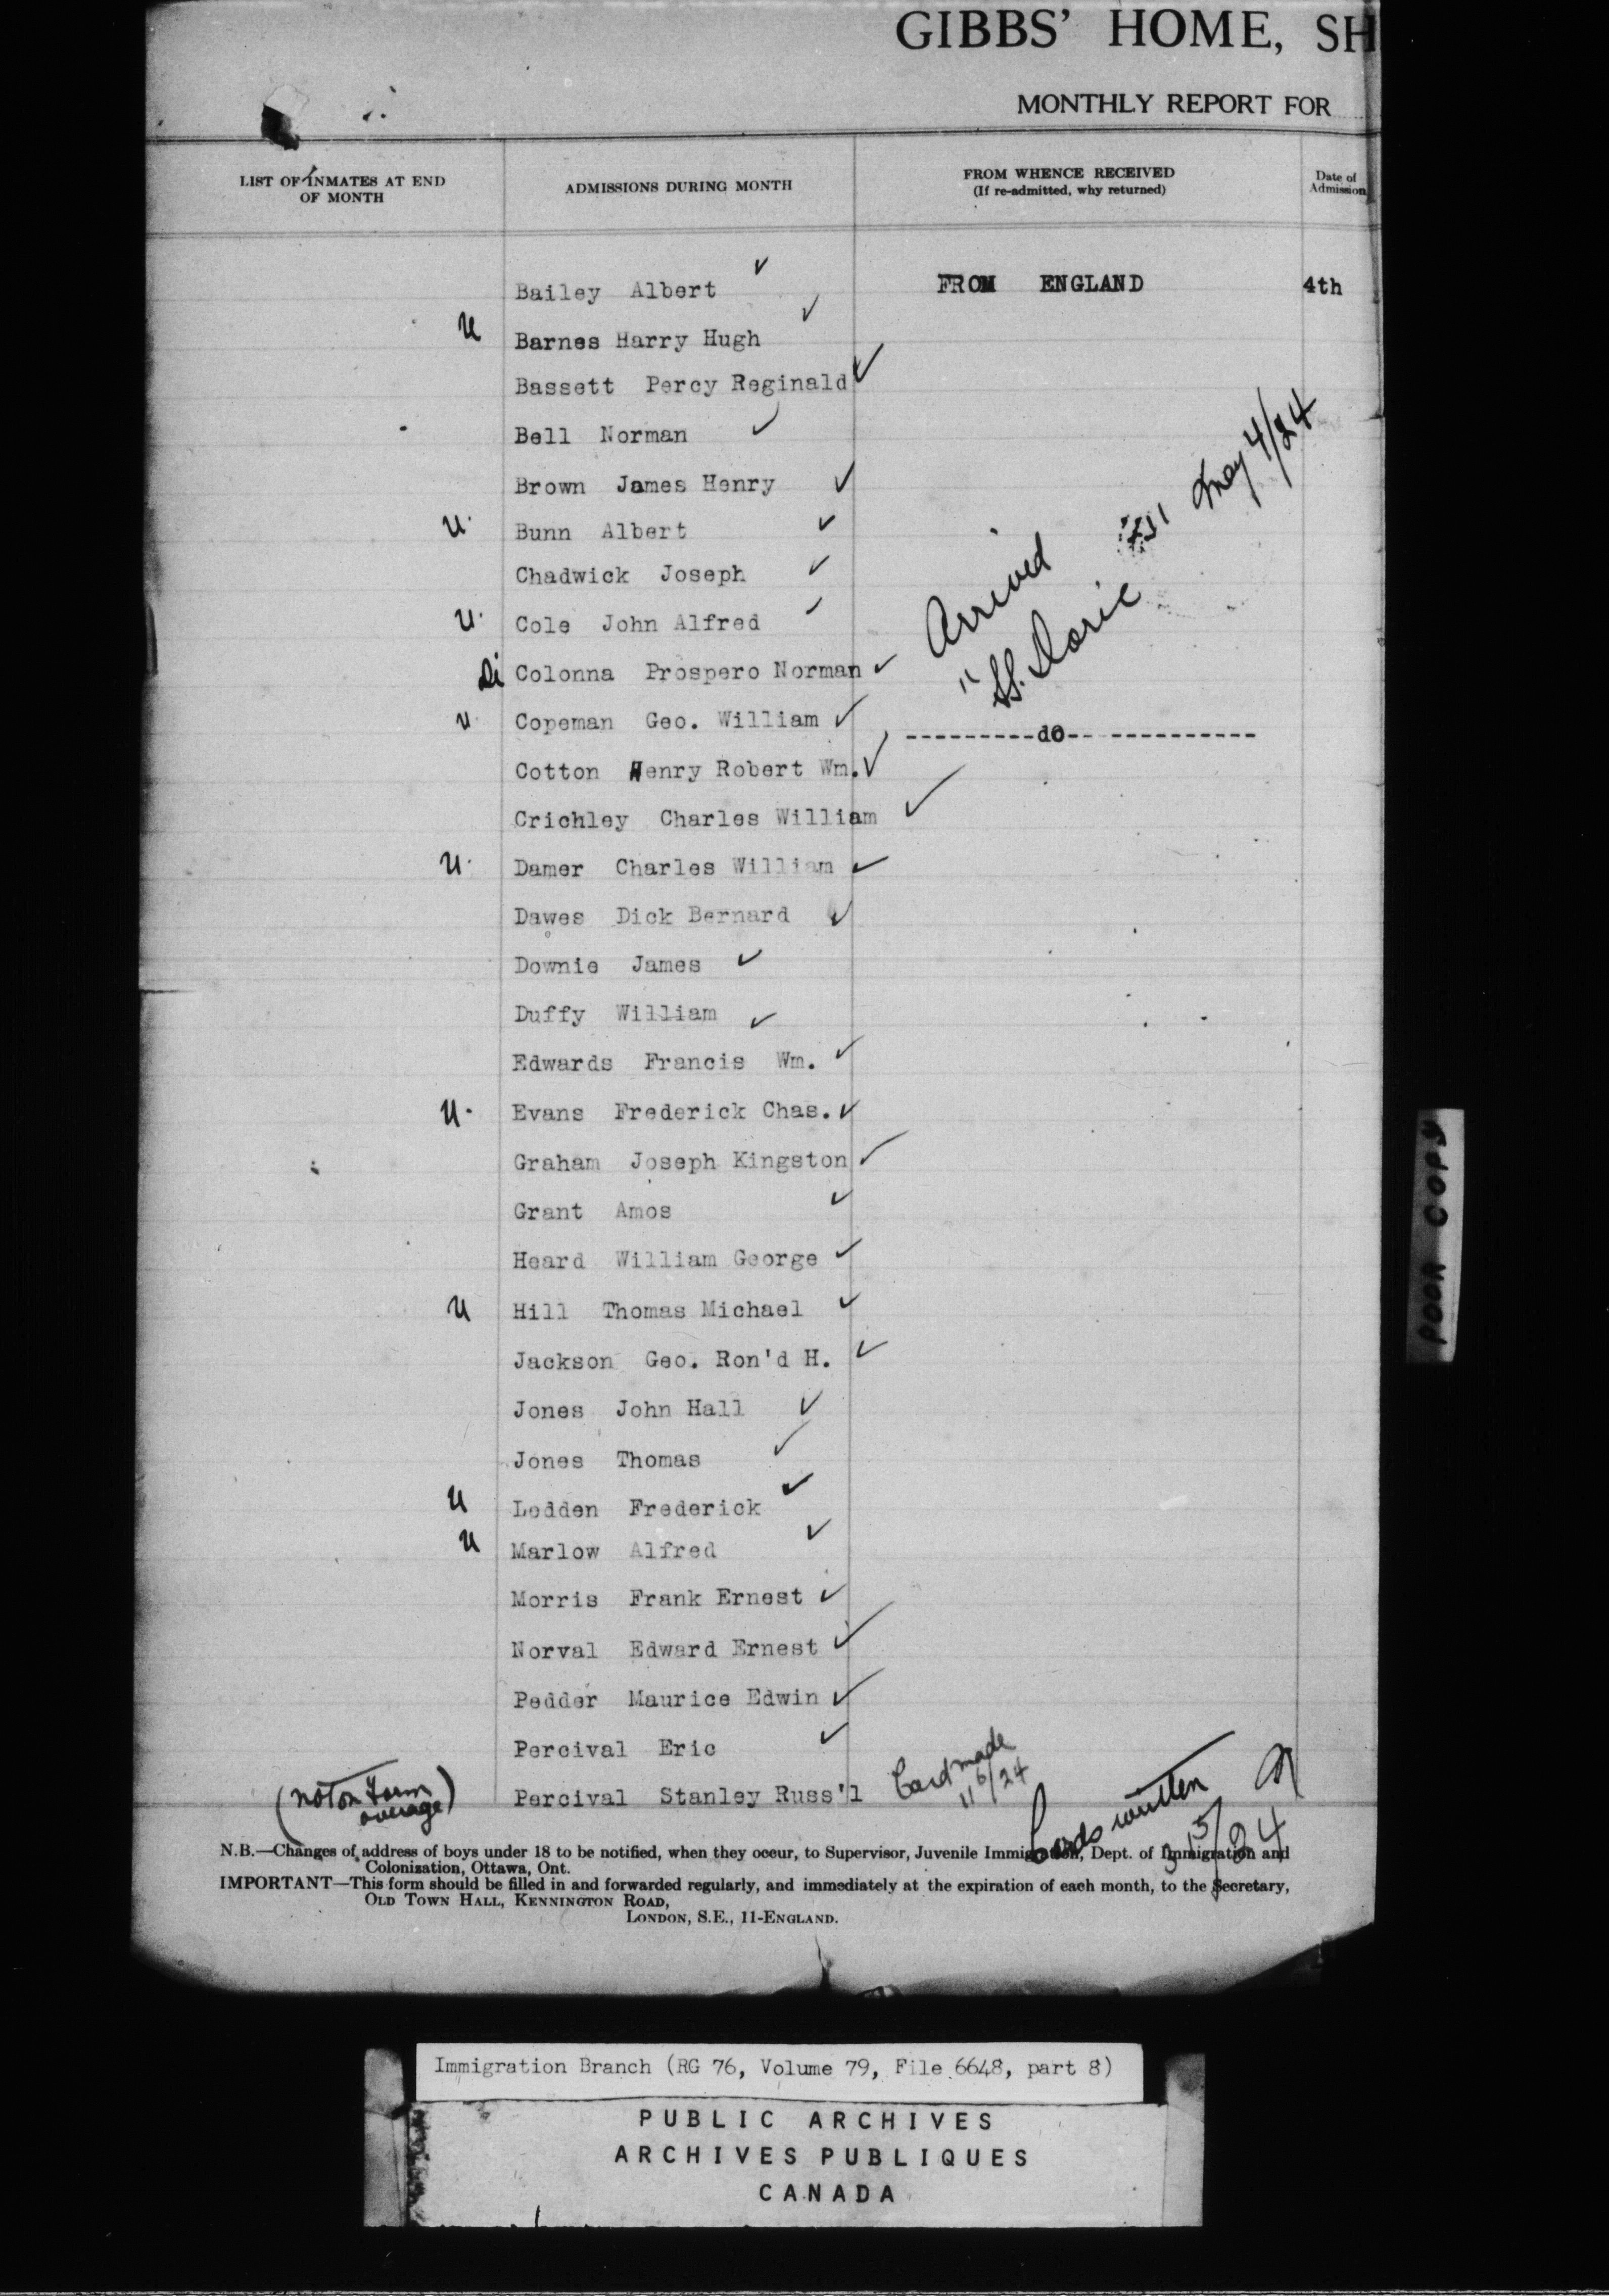 GIBBS' HOME, SH
MONTHLY REPORT FOR
LIST OF INMATES AT END
OF MONTH
ADMISSIONS DURING MONTH
FROM WHENCE RECEIVED
(If re-admitted, why returned)
Date of
Admission
Bailey Albert ✓ FROM ENGLAND 4th
U Barnes Harry Hugh ✓
Bassett Percy Reginald ✓
Bell Norman ✓
Brown James Henry ✓
U. Bunn Albert ✓
Chadwick Joseph ✓
U. Cole John Alfred ✓
Arrived May 4/24
"SS. Doric
Colonna Prospero Norman ✓
U Copeman Geo. William ✓ ---------do--------------
Cotton Henry Robert Wm. ✓
Crichley Charles William ✓
U. Damer Charles William ✓
Dawes Dick Bernard ✓
Downie James ✓
Duffy William ✓
Edwards Francis Wm. ✓
U. Evans Frederick Chas. ✓
Graham Joseph Kingston ✓
Grant Amos ✓
Heard William George ✓
U Hill Thomas Michael ✓
Jackson Geo. Ron'd H. ✓
Jones John Hall ✓
Jones Thomas ✓
U Ledden Frederick ✓
U Marlow Alfred ✓
Morris Frank Ernest ✓
Norval Edward Ernest ✓
Pedder Maurice Edwin ✓
Percival Eric ✓
Percival Stanley Russ'l
(not on form
average)
Card made
11/6/24
Cards written
N.B.—Changes of address of boys under 18 to be notified, when they occur, to Supervisor, Juvenile Immigration, Dept. of Immigration and
Colonization, Ottawa, Ont.
IMPORTANT—This form should be filled in and forwarded regularly, and immediately at the expiration of each month, to the Secretary,
OLD TOWN HALL, KENNINGTON ROAD,
LONDON, S.E., 11-ENGLAND.
POOR COPY
Immigration Branch (RG 76, Volume 79, File 6648, part 8)
PUBLIC ARCHIVES
ARCHIVES PUBLIQUES
CANADA